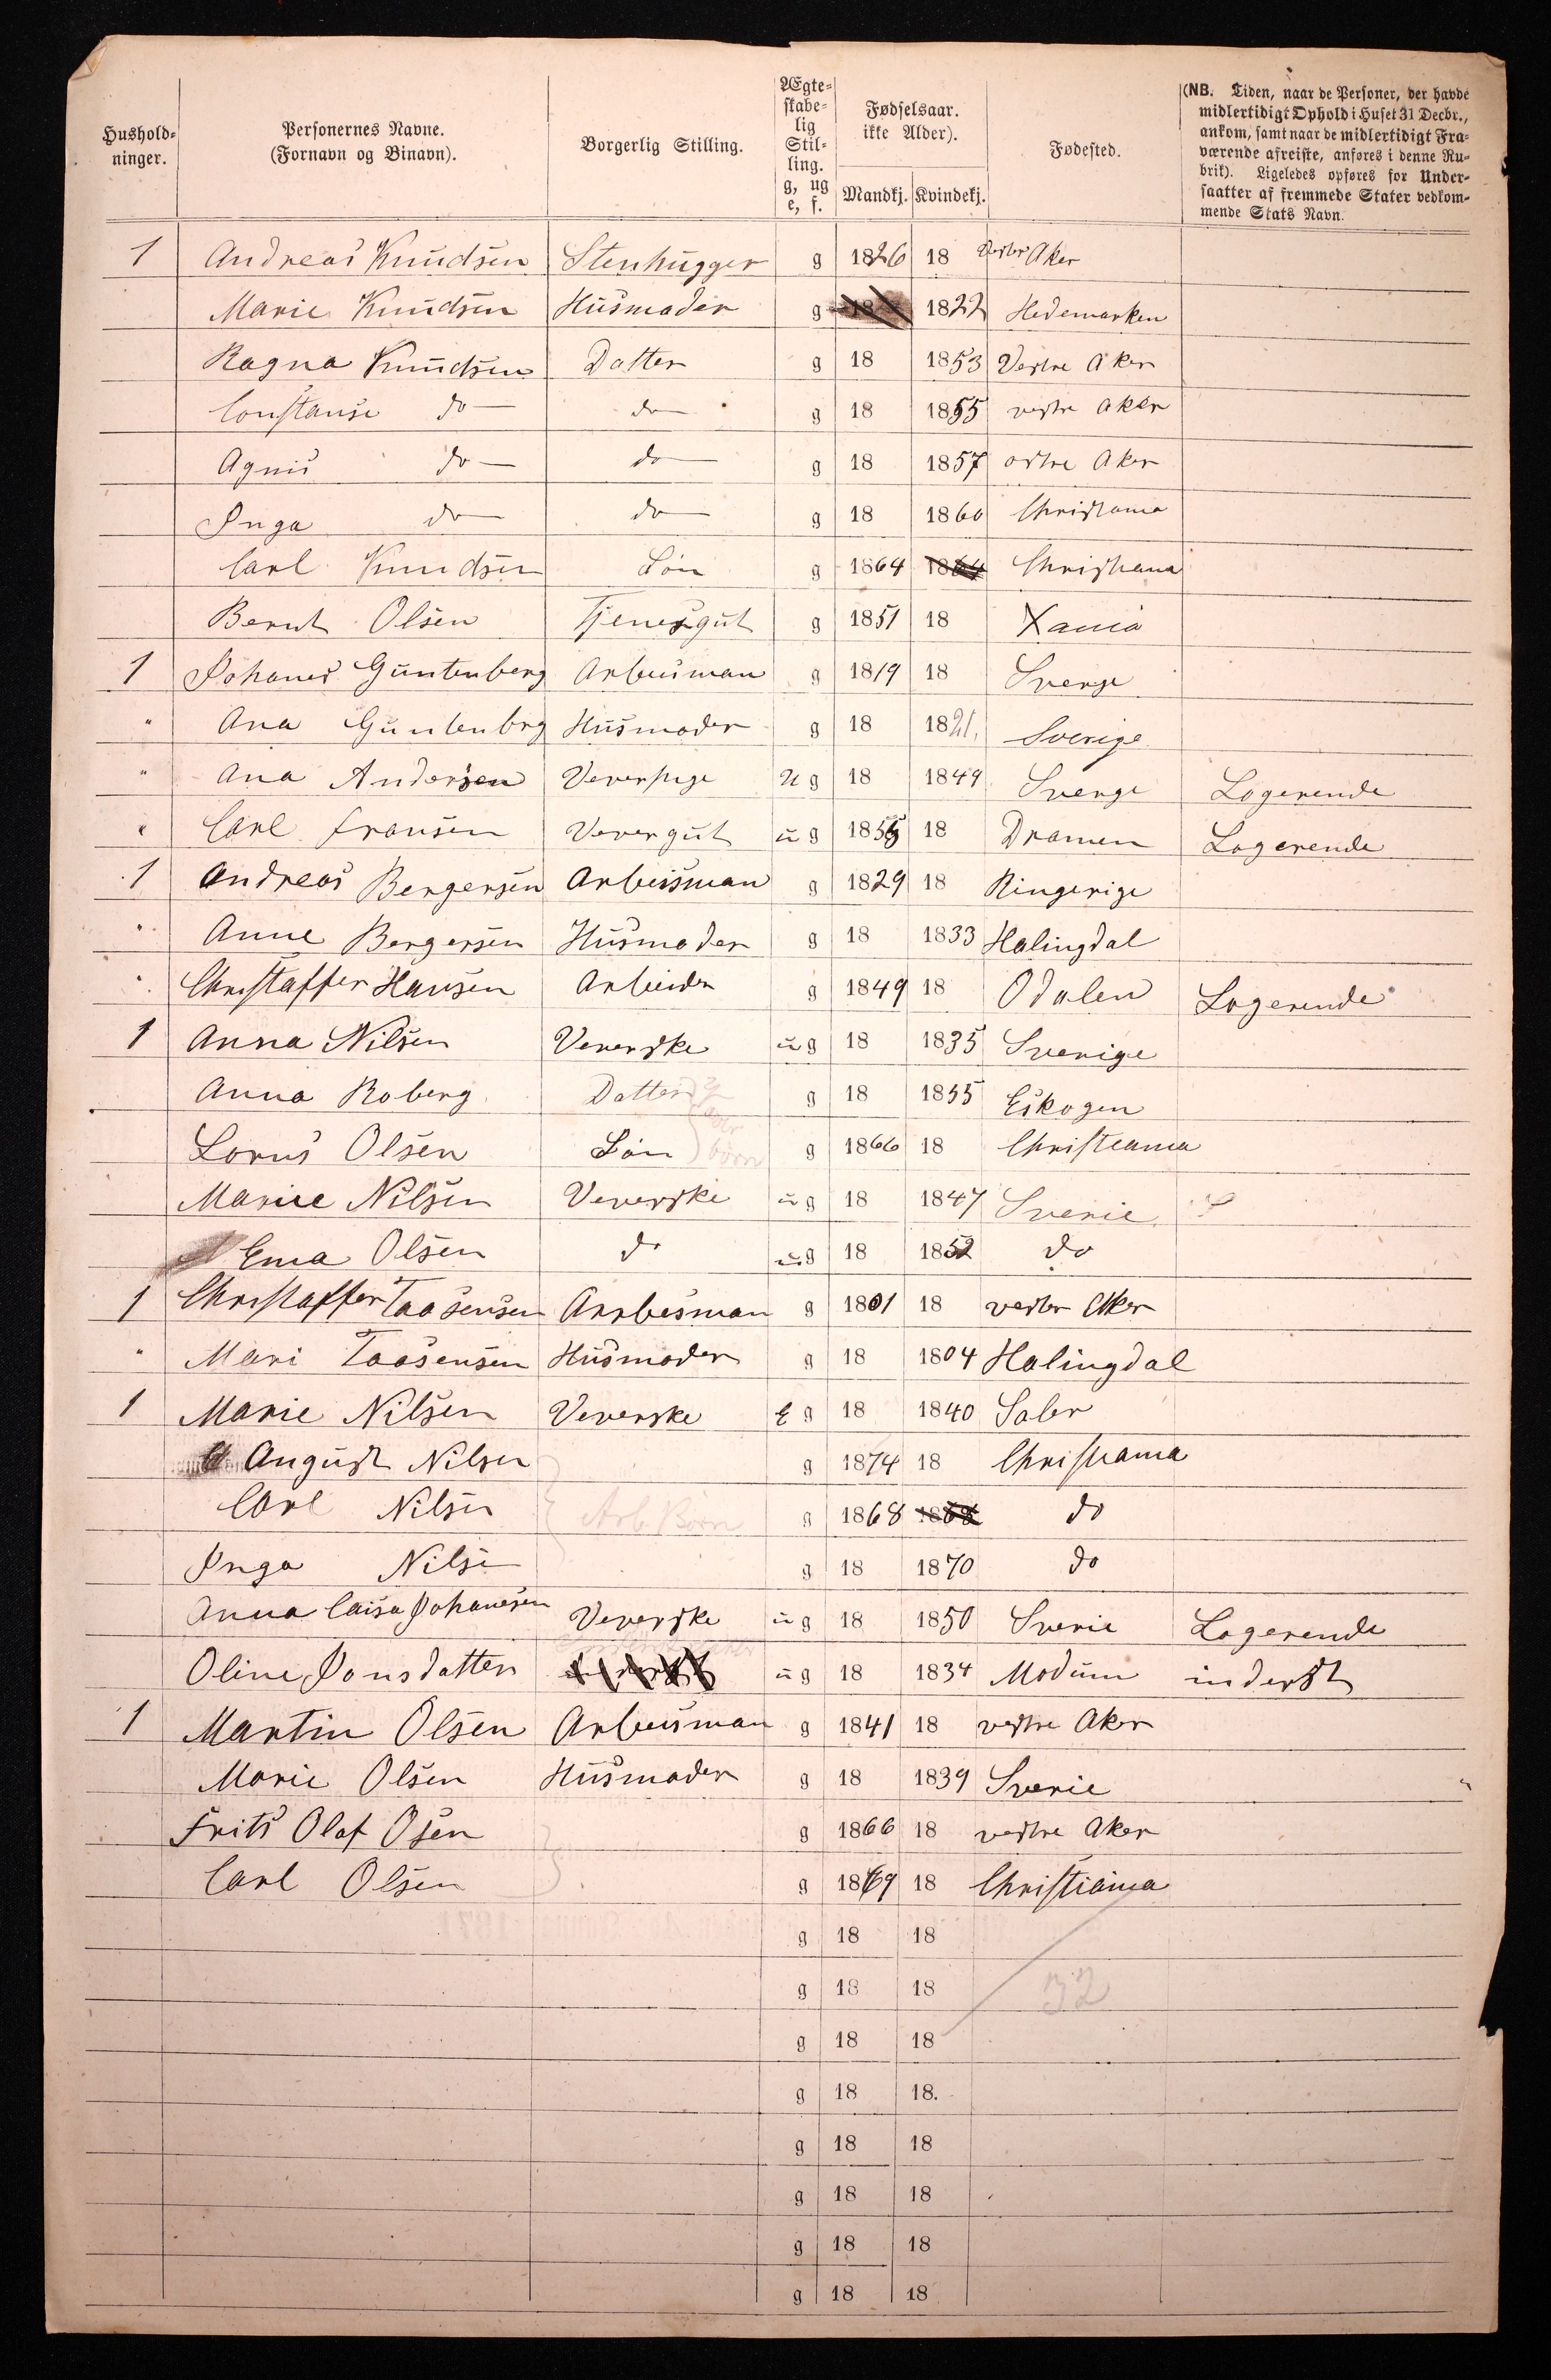 Hushold-ninger. Personernes Navne. (Fornavn og Binavn). Borgerlig Stilling. Ægte-skabe-lig Stil-ling. g, ug e, f. Fødselsaar. ikke Alder). Mandkj. Kvindekj. Fødested. (NB. Tiden, naar de Personer, der havde midlertidigt Ophold i Huset 31 Decbr., ankom, samt naar de midlertidigt Fra-værende afreiste, anføres i denne Ru-brik). Ligeledes opføres for Under-saatter af fremmede Stater vedkom-mende Stats Navn.
1 Andreas Knudsen Stenhugger g 1826 18 Vestre Aker
Marie Knudsen Husmoder g 18 1822 Hedemarken
Ragna Knudsen Datter g 18 1853 Vestre Aker
Constanse do do g 18 1855 vestre Aker
Agnis do do g 18 1857 ostre Aker
Inga do do g 18 1860 Christiania
Carl Knudsen Søn g 1864 1864 Christiania
Bernt Olsen Tjenesgut g 1851 18 Xania
1 Johanes Guntenberg Arbeisman g 1819 18 Sverge
" Ana Guntenbrg Husmoder g 18 1821. Sverige
" Ana Andersen Veverpige u g 18 1849 Sverge Logerende
" Carl fransen Vevergut u g 1855 18 Dramen Logerende
1 Andreas Bergersen Arbeisman g 1829 18 Ringerige
" Anne Bergersen Husmoder g 18 1833 Halingdal
" Christaffer Hansen Arbeider g 1849 18 Odalen Logerende
1 Anna Nilsen Veverske u g 18 1835 Sverige
Anna Roberg Datter g 18 1855 Eskogen
Lorns Olsen Søn børn g 1866 18 Christiania
Mariee Nilsen Veverske u g 18 1847 Sverie
Ema Olsen do u g 18 1852 do
1 Christaffer Taasensen Arrbesman g 1801 18 vestre Aker
" Mari Taasensen Husmoder g 18 1804 Halingdal
1 Marie Nilsen Veverske E g 18 1840 Soler
August Nilsen g 1874 18 Christiania
Carl Nilsen Arb. Børn g 1868 1868 do
Inga Nilse g 18 1870 do
Anna Caisa Johanesen Veverske u g 18 1850 Sverie Logerende
Oline Jonsdatter u g 18 1834 Modum inderst
1 Martin Olsen Arbeisman g 1841 18 vestre Aker
Marie Olsen Husmoder g 18 1839 Sverie
Frits Olaf Osen g 1866 18 vestre Aker
Carl Olsen g 1869 18 Christiania
g 18 18
g 18 18 32
g 18 18
g 18 18.
g 18 18
g 18 18
g 18 18
g 18 18